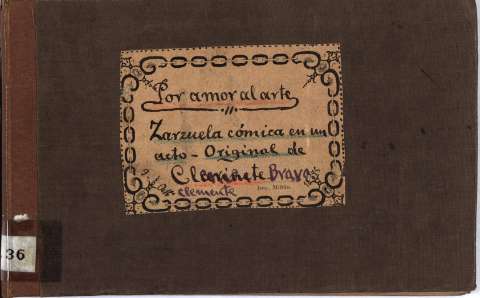 Por amor al arte
Zarzuela cómica en un
acto - Original de
Clarinete Bravo
clemente
36